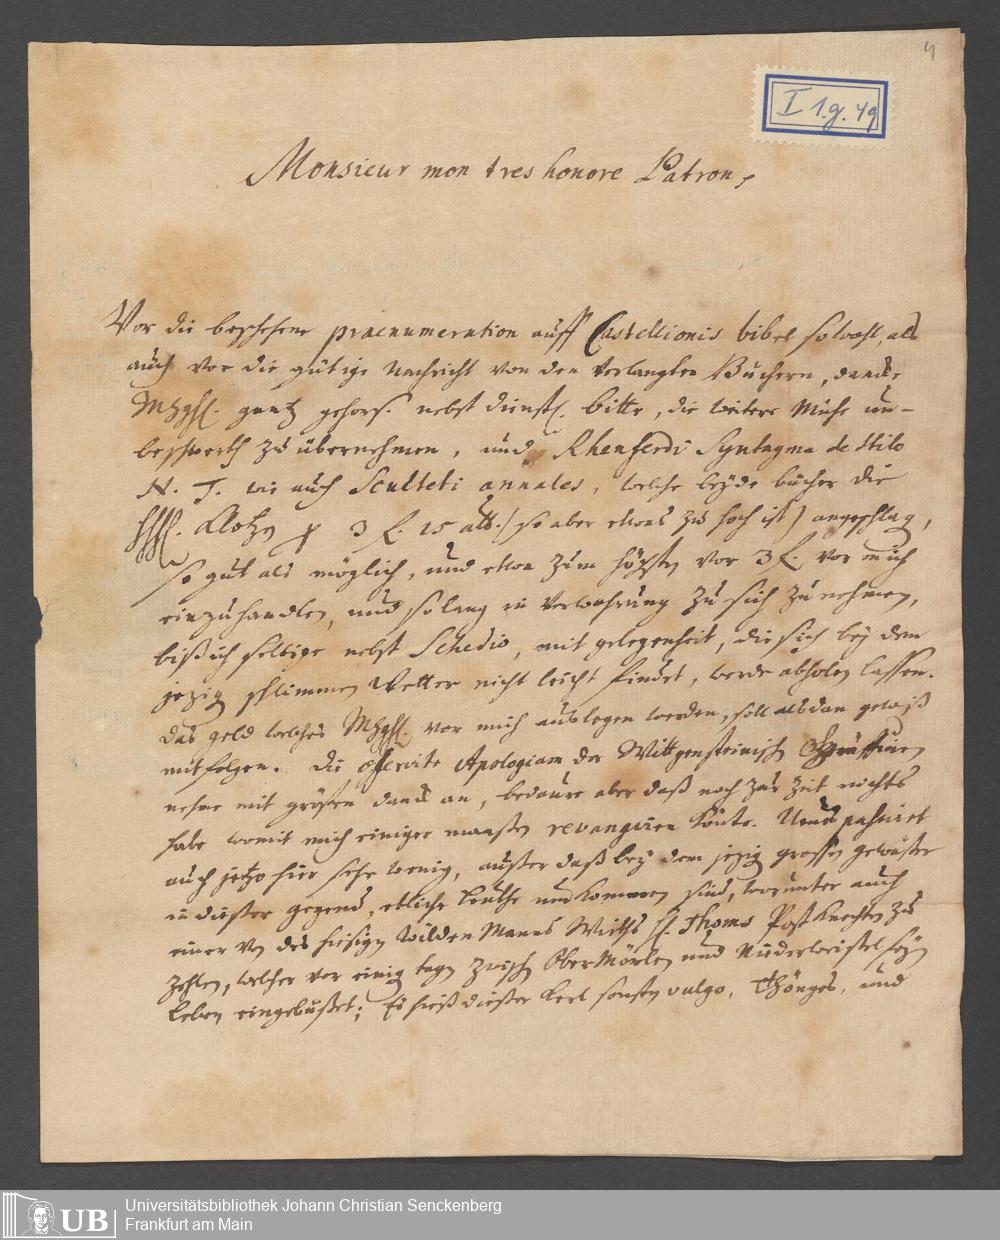 4
I 1.g.49
Monsieur mon tres honore Patron,
Vor die beschehene praenumeration auff Castellionis bibel so wohl, als
auch vor die gütige nachricht von den verlangten Büchern, dancke
MhgH. gantz gehors. nebst dienstl. bitte, die weitere Mühe un-
beschwerth zu übernehmen, und Rhenferdi Syntagma de stilo
N. T. wie auch Sculteti annales, welche beyde bücher die
Klotz 3 f. 15 alb. / so aber etwas zu hoch ist / angeschlag,
so gut als möglich, und etwa zum höchsten vor 3 f. vor mich
einzuhandlen, und so lang in Verwahrung zu sich zu nehmen,
biß ich selbige nebst Schedio, mit gelegenheit, die sich bey dem
jezig schlimmen Wetter nicht leicht findet, werde abholen lassen.
das geld welches MhgH. vor mich auslegen werden, soll alsdan gewiß
mitfolgen. Die offerirte Apologiam der Wittgensteinisch
nehme mit grösten danck an, bedaure aber daß noch zur Zeit nichts
habe womit mich einiger maasen revangiren könte. Neues passiret
auch jetzo hier sehr wenig, ausser daß bey dem jezig grossen gewässer
in dieser gegend, etliche leuthe umkommen sind, worunter auch
einer von des hiesigen Wilden Manns Wirths H. Thoms Post Knechten zu
zehlen, welcher vor einig tagen zwisch Ober Mörlen und Niederweisel seyn
leben eingebüßet; Es hieß dieser kerl sonsten vulgo, Thönges, und
Universitätsbibliothek Johann Christian Senckenberg
Frankfurt am Main
UB